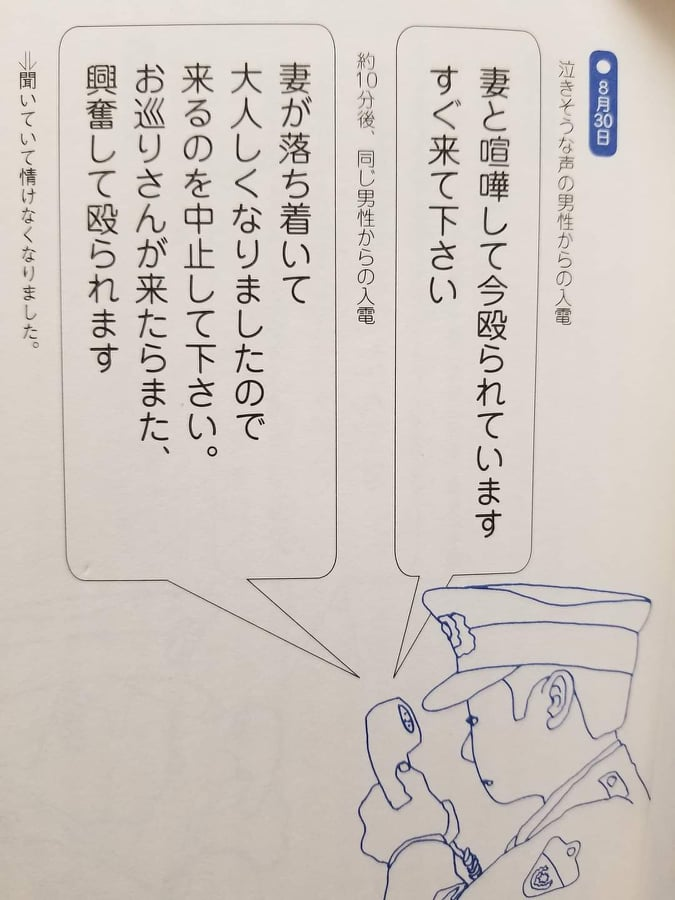 ●8月30日
泣きそうな声の男性からの入電
妻と喧嘩して今殴られています
すぐ来て下さい
約10分後、同じ男性からの入電
妻が落ち着いて
大人しくなりましたので
来るのを中止して下さい。
お巡りさんが来たらまた、
興奮して殴られます
⇒聞いていて情けなくなりました。